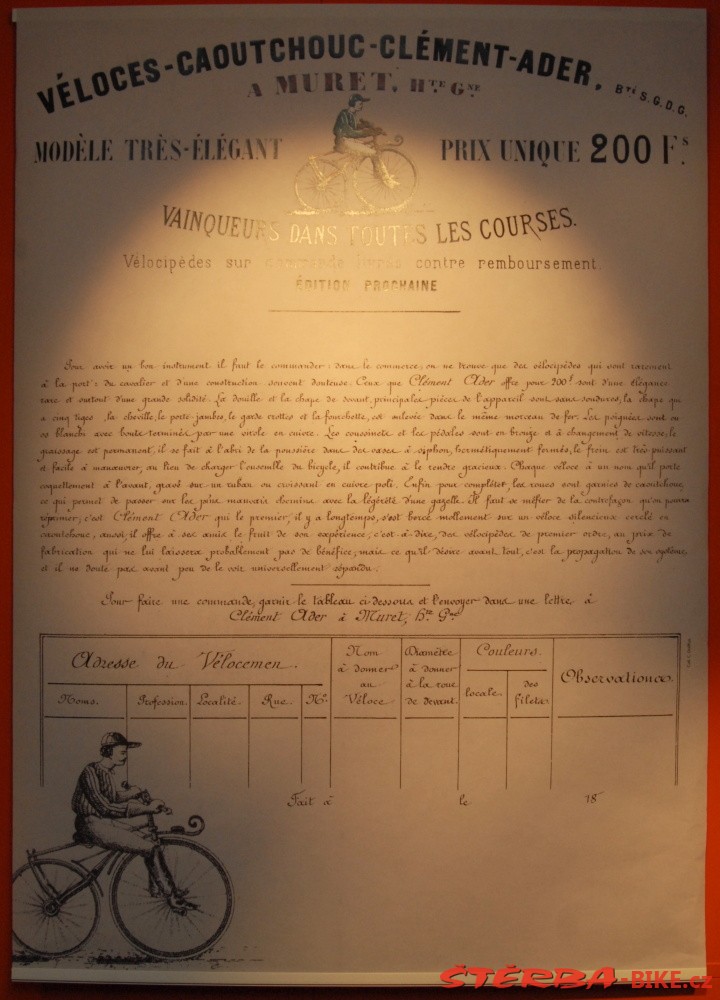 VÉLOCES-CAOUTCHOUC-CLÉMENT-ADER, BTÉ S.G.D.G.
A MURET, HTE GNE
MODÈLE TRÈS-ÉLÉGANT PRIX UNIQUE 200 FS.
VAINQUEURS DANS TOUTES LES COURSES.
Vélocipèdes sur commande livrés contre remboursement.
ÉDITION PROCHAINE
Pour avoir un bon instrument il faut le commander: dans le commerce, on ne trouve que des vélocipèdes qui vont rarement
à la port: du cavalier et d'une construction souvent douteuse: Ceux que Clément Ader offre pour 200f sont d'une élégance
rare et surtout d'une grande solidité. La douille et la chape de devant, principales pièces de l'appareil sont sans soudures, la chape qui
a cinq tiges, la cheville, le porte-jambes, le garde crottes et la fourchette, est enlevée dans le même morceau de fer. Les poignées sont en
os blanchi avec bouts terminés par une virole en cuivre. Les coussinets et les pédales sont en bronze et à changement de vitesse, le
graissage est permanent, il se fait à l'abri de la poussière dans des vases à siphon, hermétiquement fermés, le frein est très-puissant
et facile à manœuvrer, au lieu de charger l'ensemble du bicycle, il contribue à le rendre gracieux. Chaque véloce a un nom qu'il porte
coquettement à l'avant, gravé sur un ruban ou croissant en cuivre poli. Enfin pour compléter, les roues sont garnies de caoutchouc,
ce qui permet de passer sur les plus mauvais chemins avec la légèreté d'une gazelle. Il faut se méfier de la contrefaçon qu'on pourra
réprimer; c'est Clément Ader qui le premier, il y a longtemps, s'est bercé mollement sur un véloce silencieux cerclé en
caoutchouc, aussi, il offre à ses amis le fruit de son expérience, c'est-à-dire, des vélocipèdes de premier ordre, au prix de
fabrication qui ne lui laissera probablement pas de bénéfice, mais ce qu'il désire avant tout, c'est la propagation de son système
et il ne doute pas avant peu de le voir universellement répandu.
Pour faire une commande, garnir le tableau ci-dessous et l'envoyer dans une lettre à
Clément Ader à Muret, Hte Gne
Adresse du Vélocemen.
Noms. Profession. Localité. Rue. No.
Nom à donner au Véloce
Diamètre à donner à la roue de devant.
Couleurs.
locale. des filets.
Observations.
Fait à le 18
ŠTĚRBA-BIKE.cz